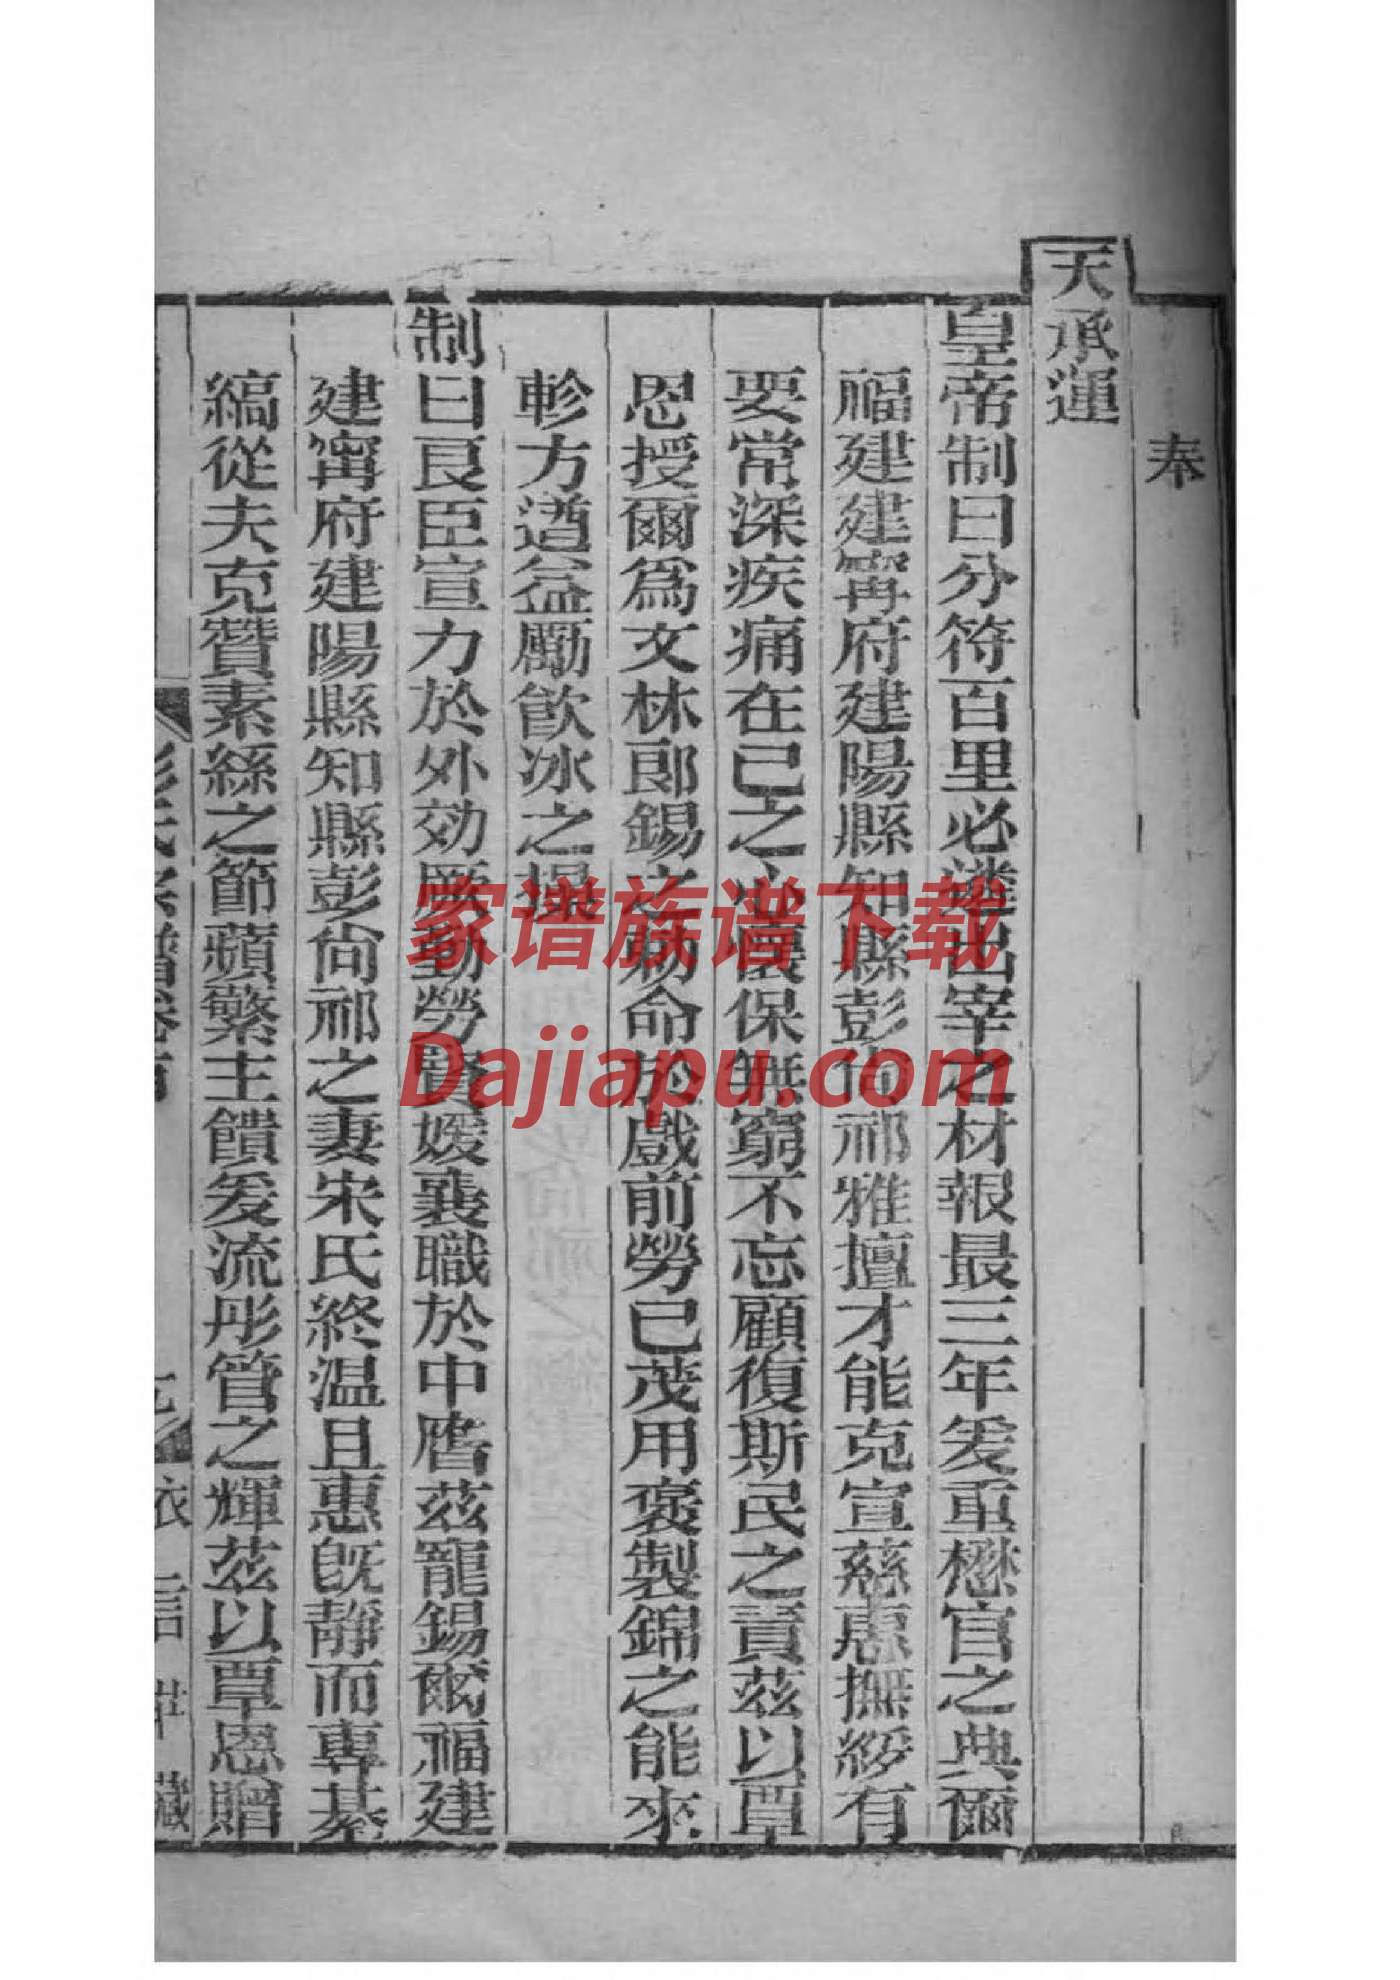 奉
天承運
皇帝制曰分符百里必遴出宰之材報最三年爰重懋官之典爾
福建建寧府建陽縣知縣彭尙祁雅擅才能克宣慈惠撫綏有
要常深疾痛在己之心懷保無窮不忘顧復斯民之責茲以覃
恩授爾爲文林郎錫之勅命於戲前勞已茂用褒製錦之能來
軫方遒益勵飮冰之操
制曰良臣宣力於外効厥勤勞賢媛襄職於中膺茲寵錫爾福建
建寧府建陽縣知縣彭尙祁之妻宋氏終温且惠旣靜而專綦
縞從夫克贊素絲之節蘋蘩主饋爰流彤管之輝茲以覃恩贈
家谱族谱下载
Dajiapu.com